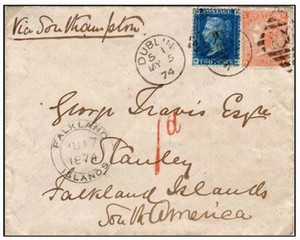 Via Southampton
DUBLIN
S 1
MY 5
74
George Travis Esqre
1d
FALKLAND
1874
ISLANDS
Stanley
Falkland Islands
South America